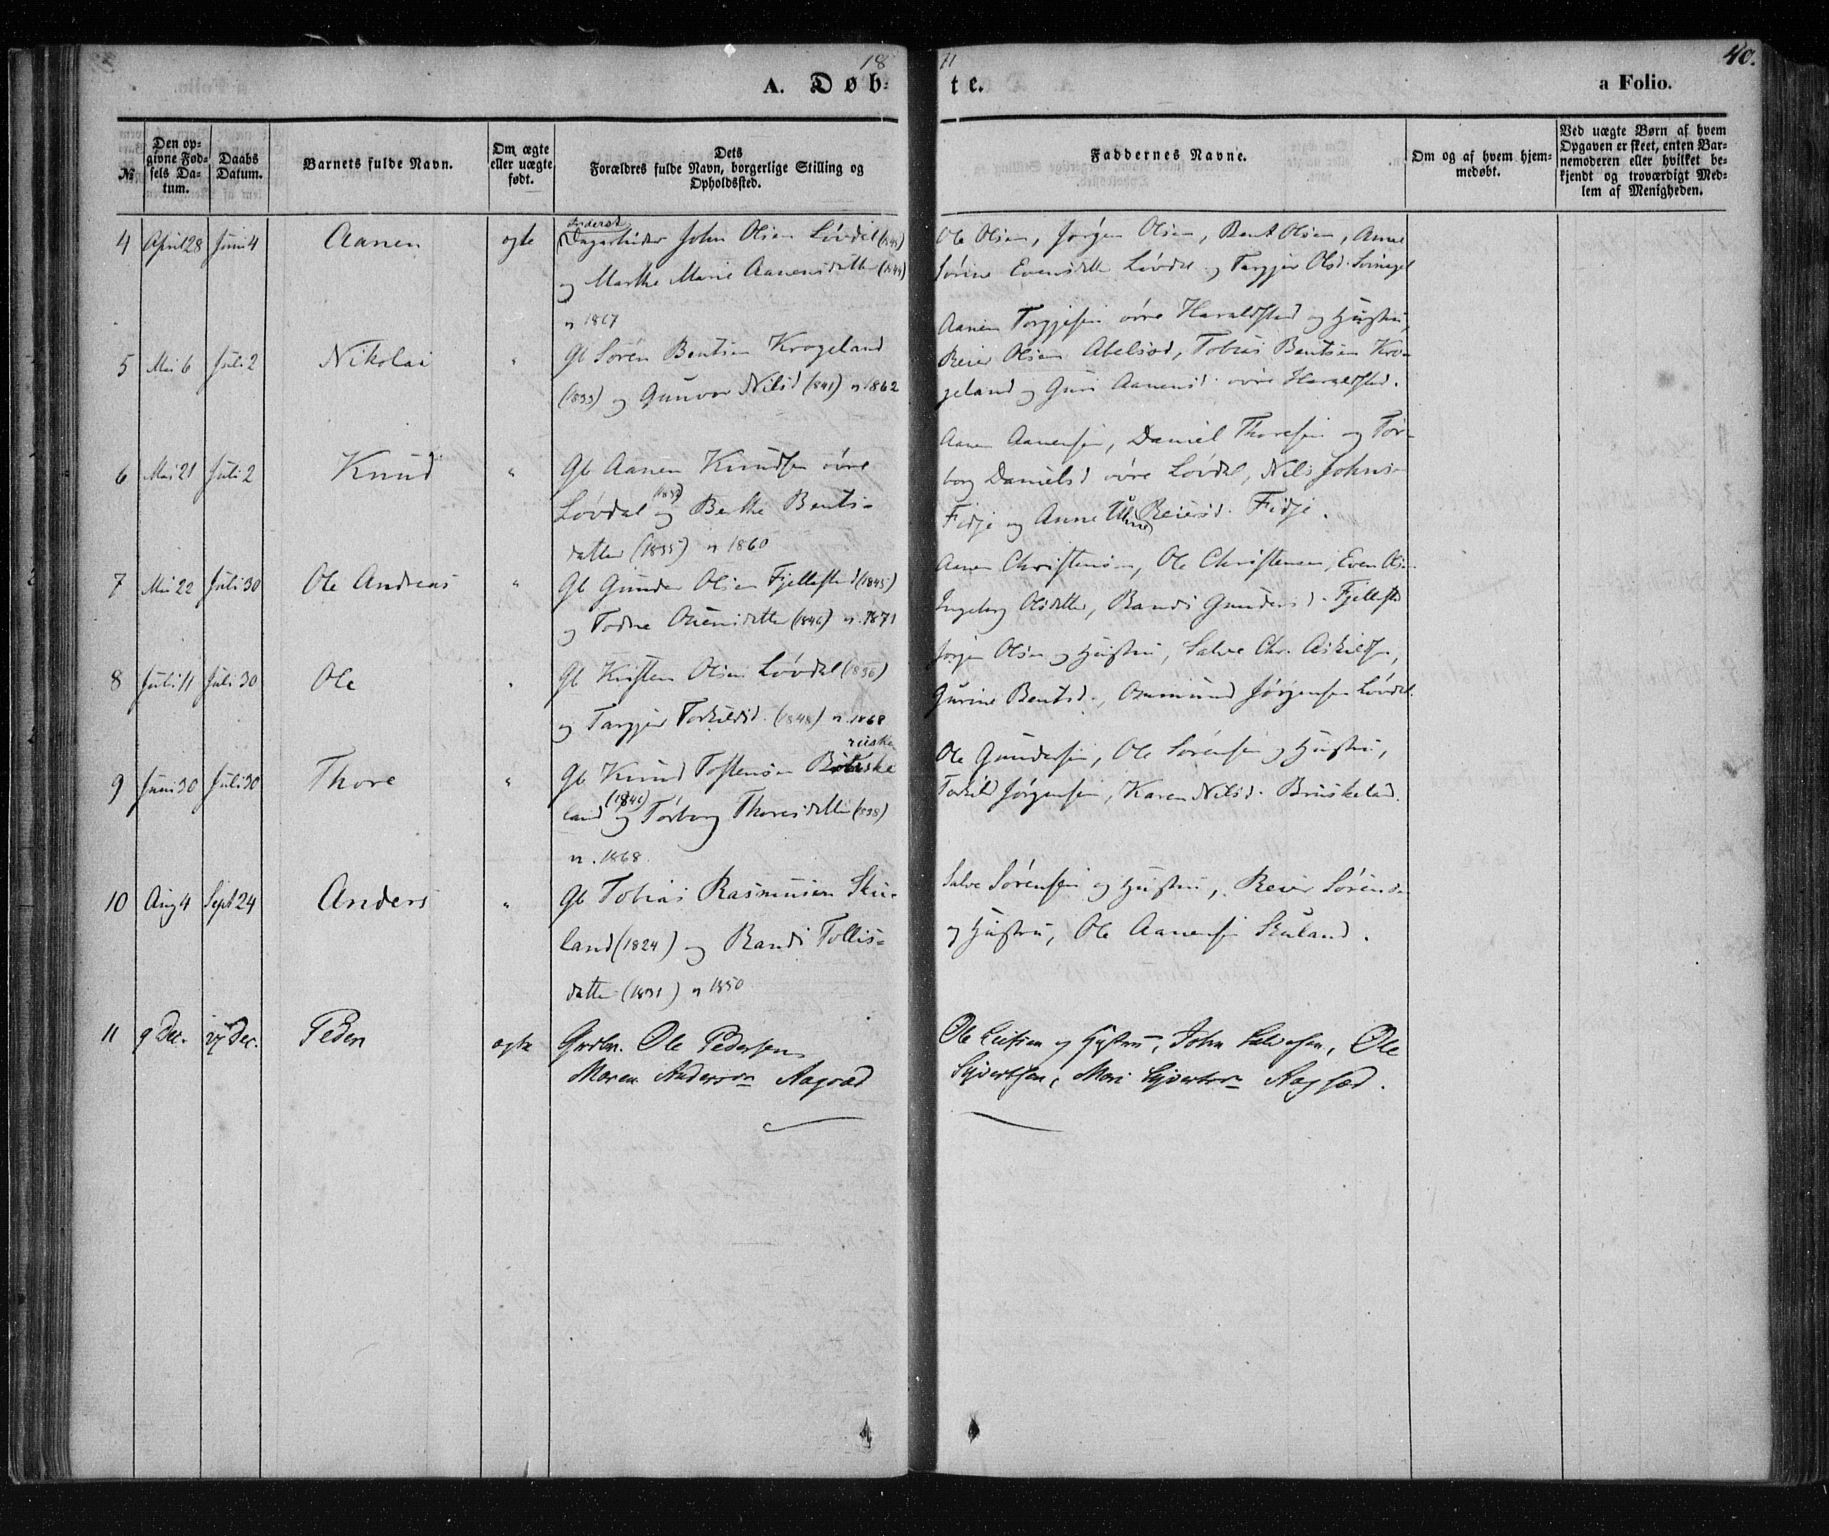 18 71
40.
A. Døb-
te.
a Folio.
№
Den op-
givne Fød-
sels Da-
tum.
Daabs
Datum.
Barnets fulde Navn.
Om ægte
eller uægte
født.
Dets
Forældres fulde Navn, borgerlige Stilling og
Opholdssted.
Faddernes Navne.
Om og af hvem hjem-
medøbt.
Ved uægte Børn af hvem
Opgaven er skeet, enten Bar-
nemoderen eller hvilket be-
kjendt og troværdigt Med-
lem af Menigheden.
4 April 28 Juni 4 Aanen ægte
Dagarbeider John Olsen Løvdal
og Marthe Marie Aanensdatter (1844)
v 1867
Ole Olsen, Jørgen Olsen, Bent Olsen, Anne
Sørine Evensdatter Løvdal og Targjer Olsd.
5 Mai 6 Juli 2 Nikolai "
Gb Søren Bentsen Krogeland
(1833) og Gunvor Nilsd (1841) v 1862
Aanen Torgjesen øvre Haraldstad og Hustru,
Reier Olsen Abelsød, Tobias Bentsen Kro-
geland og Guri Aanensd. øvre Haraldstad.
6 Mai 21 Juli 2 Knud "
Gb Aanen Knudsen øvre
Løvdal og Berthe Bents-
datter (1835) v 1860
Aanen Aanensen, Daniel Thoresen og Tor-
borg Danielsd øvre Løvdal, Nils Johns-
Fidje og Anne Reiersd. Fidje.
7 Mai 22 Juli 30 Ole Andreas "
Gb Gunder Olsen Fjellestad (1845)
og Todne (1846) v. 1871
Aanen Christensen, Ole Christensen, Even Olsen
Ingeborg Olsdatter, Randi Gundersd. Fjellestad
8 Juli 11 Juli 30 Ole "
Gb Kristen Olsen Løvdal (1836)
og Targjer Torkildsd. (1848) v. 1868
Jørgen Olsen og Hustru, Salve Chr. Askildsen,
Gurine Bentsd., Osmund Jørgensen Løvdal.
9 Juni 30 Juli 30 Thore "
ruske
Gb Knud Tostensen
land (1841) og Torborg Thoresdatter (1838)
v. 1868.
Ole Gundersen, Ole Sørensen og Hustru,
Torkild Jørgensen, Karen Nilsd. Bruskeland.
10 Aug 4 Sept 24 Anders "
Gb Tobias Rasmusen Sku-
land (1824) og Randi Tollis-
datter (1831) v 1850
Salve Sørensen og Hustru, Reier Sørensen
og Hustru, Ole Aanensen Skuland.
11 9 Dec. 27 Dec. Peder ægte
Grdbr. Ole Pedersen
Maren Andersdr Aagsæd
Ole og Hustru, John Salvesen, Ole
Syvertsen, Mari Syvertsdr Aagsæd.